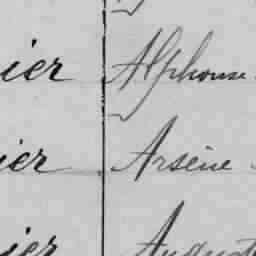 ier Alphonse
ier Arsène
ier Auguste